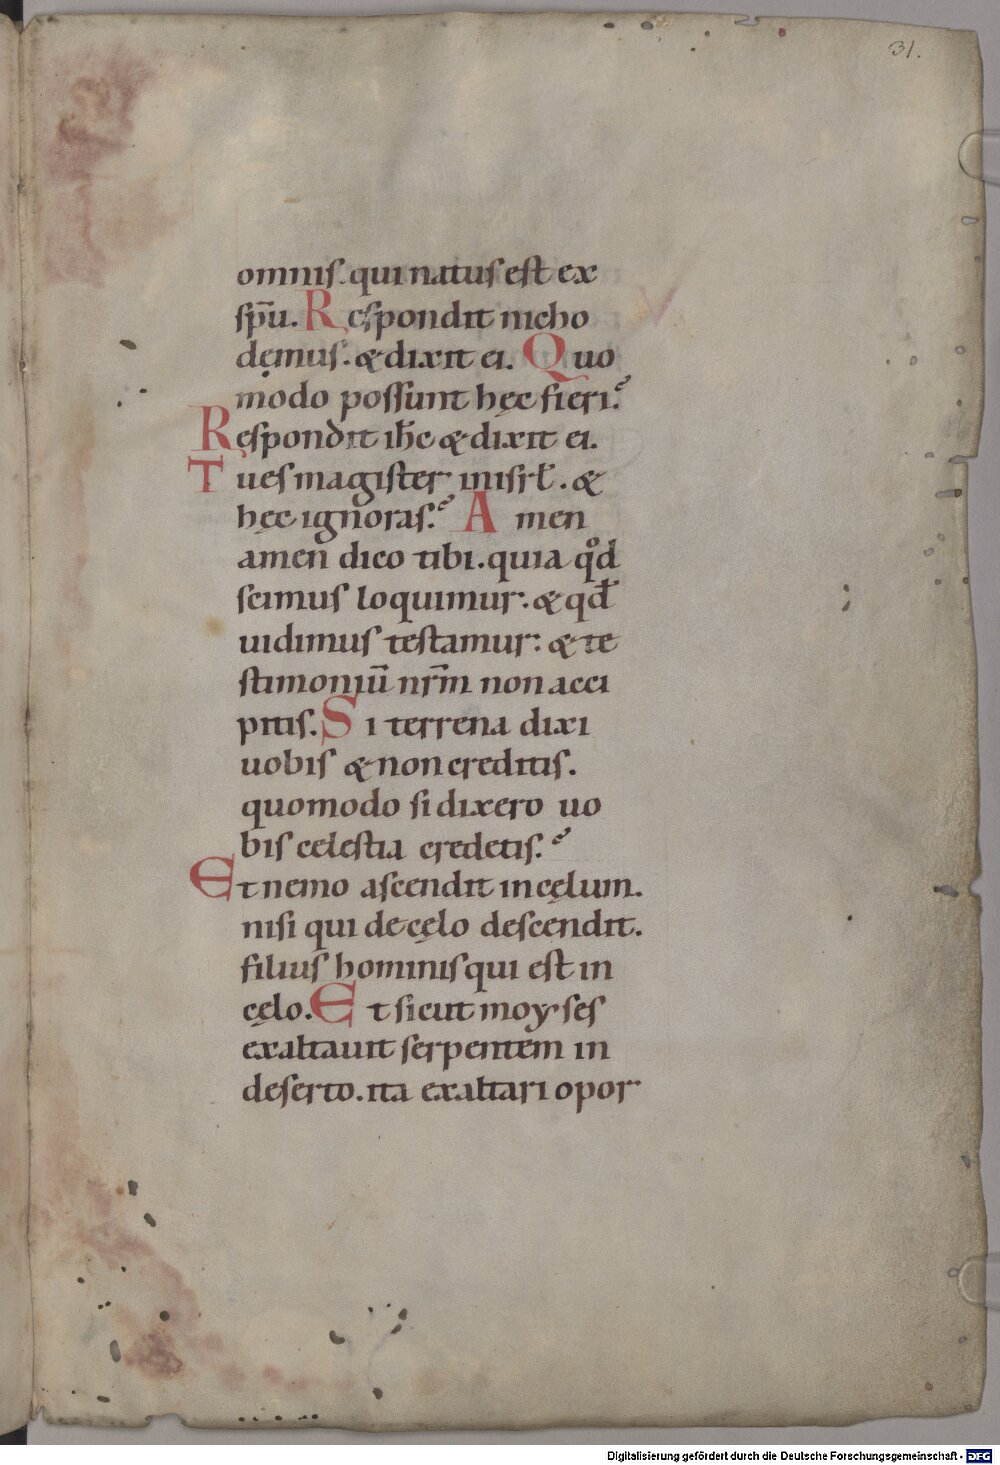 31.
omnis. qui natus est ex
sp̄u. Respondit nicho
demus. & dixit ei. Quo
modo possunt hęc fieri?
Respondit ih̄c & dixit ei.
Tu es magister in isrł. &
hęc ignoras? Amen
amen dico tibi. quia qd̊
scimus loquimur. & qđ
uidimus testamur: & te
stimoniū nr̄m non acci
pitis. Si terrena dixi
uobis & non creditis.
quomodo si dixero uo
bis celestia credetis?
Et nemo ascendit in cęlum.
nisi qui de cęlo descendit.
filius hominis qui est in
cęlo. Et sicut moyses
exaltauit serpentem in
deserto. ita exaltari opor
Digitalisierung gefördert durch die Deutsche Forschungsgemeinschaft - DFG